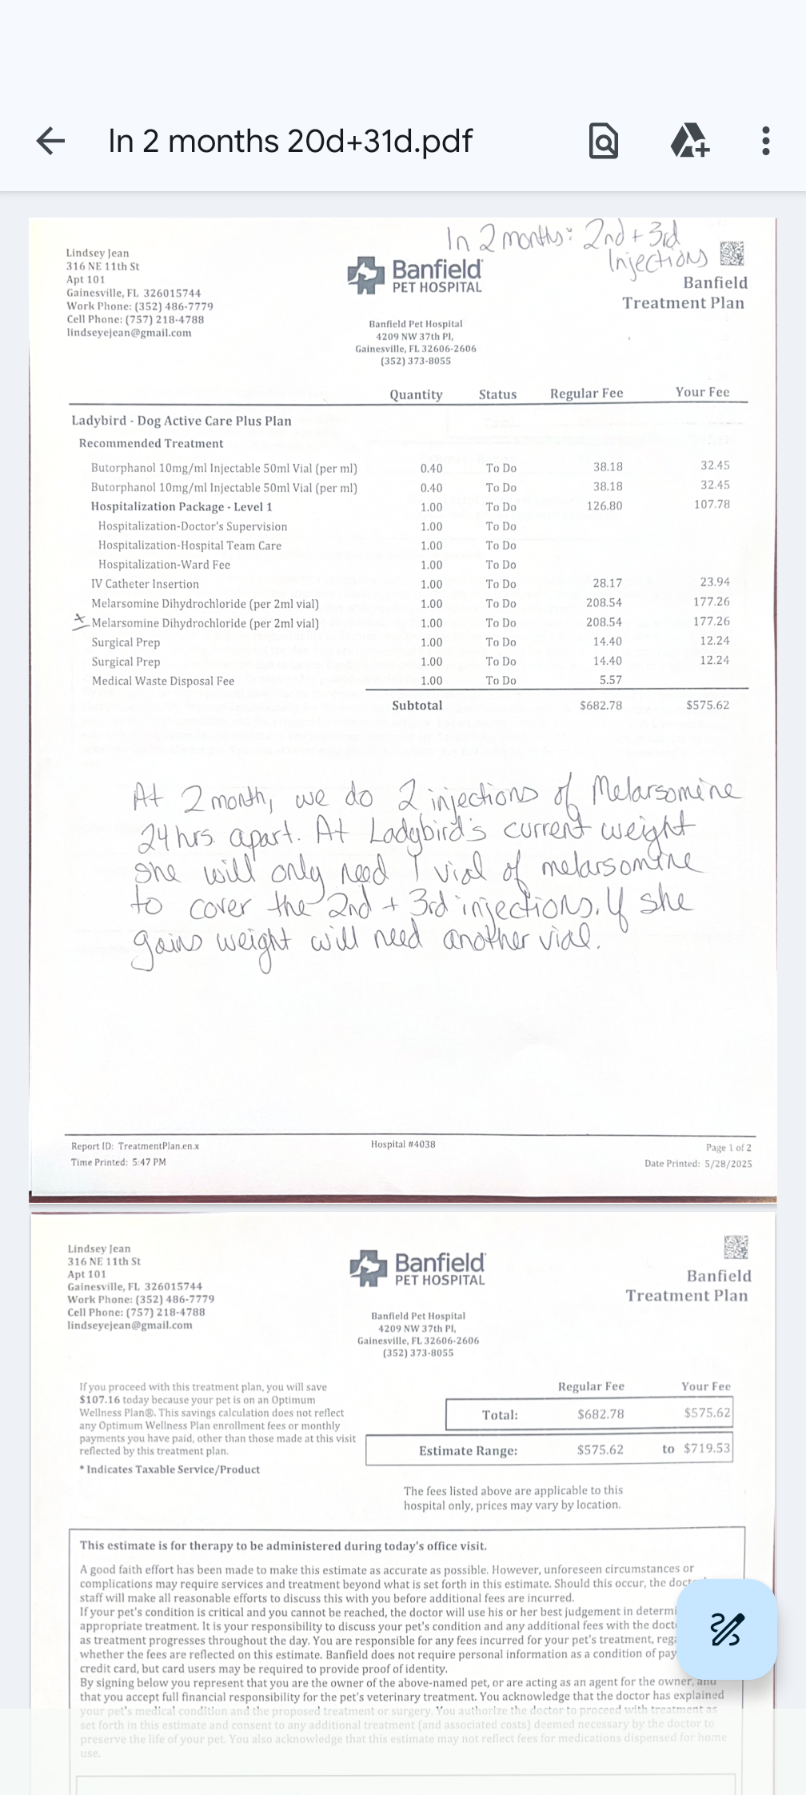 In 2 months 20d+31d.pdf
In 2 months: 2nd + 3rd
Injections
Lindsey Jean
316 NE 11th St
Apt 101
Gainesville, FL 326015744
Work Phone: (352) 486-7779
Cell Phone: (757) 218-4788
lindseyejean@gmail.com
Banfield
PET HOSPITAL
Banfield
Treatment Plan
Banfield Pet Hospital
4209 NW 37th Pl,
Gainesville, FL 32606-2606
(352) 373-8055
Quantity Status Regular Fee Your Fee
Ladybird - Dog Active Care Plus Plan
Recommended Treatment
Butorphanol 10mg/ml Injectable 50ml Vial (per ml) 0.40 To Do 38.18 32.45
Butorphanol 10mg/ml Injectable 50ml Vial (per ml) 0.40 To Do 38.18 32.45
Hospitalization Package - Level 1 1.00 To Do 126.80 107.78
Hospitalization-Doctor's Supervision 1.00 To Do
Hospitalization-Hospital Team Care 1.00 To Do
Hospitalization-Ward Fee 1.00 To Do
IV Catheter Insertion 1.00 To Do 28.17 23.94
Melarsomine Dihydrochloride (per 2ml vial) 1.00 To Do 208.54 177.26
Melarsomine Dihydrochloride (per 2ml vial) 1.00 To Do 208.54 177.26
Surgical Prep 1.00 To Do 14.40 12.24
Surgical Prep 1.00 To Do 14.40 12.24
Medical Waste Disposal Fee 1.00 To Do 5.57
Subtotal $682.78 $575.62
At 2 month, we do 2 injections of Melarsomine
24 hrs apart. At Ladybird's current weight
she will only need 1 vial of melarsomine
to cover the 2nd + 3rd injections. If she
gains weight will need another vial.
Report ID: TreatmentPlan.en.x Hospital #4038 Page 1 of 2
Time Printed: 5:47 PM Date Printed: 5/28/2025
Lindsey Jean
316 NE 11th St
Apt 101
Gainesville, FL 326015744
Work Phone: (352) 486-7779
Cell Phone: (757) 218-4788
lindseyejean@gmail.com
Banfield
PET HOSPITAL
Banfield
Treatment Plan
Banfield Pet Hospital
4209 NW 37th Pl,
Gainesville, FL 32606-2606
(352) 373-8055
If you proceed with this treatment plan, you will save
$107.16 today because your pet is on an Optimum
Wellness Plan®. This savings calculation does not reflect
any Optimum Wellness Plan enrollment fees or monthly
payments you have paid, other than those made at this visit
reflected by this treatment plan.
* Indicates Taxable Service/Product
Regular Fee Your Fee
Total: $682.78 $575.62
Estimate Range: $575.62 to $719.53
The fees listed above are applicable to this
hospital only, prices may vary by location.
This estimate is for therapy to be administered during today's office visit.
A good faith effort has been made to make this estimate as accurate as possible. However, unforeseen circumstances or
complications may require services and treatment beyond what is set forth in this estimate. Should this occur, the doct
staff will make all reasonable efforts to discuss this with you before additional fees are incurred.
If your pet's condition is critical and you cannot be reached, the doctor will use his or her best judgement in determi
appropriate treatment. It is your responsibility to discuss your pet's condition and any additional fees with the doct
as treatment progresses throughout the day. You are responsible for any fees incurred for your pet's treatment, rega
whether the fees are reflected on this estimate. Banfield does not require personal information as a condition of pay
credit card, but card users may be required to provide proof of identity.
By signing below you represent that you are the owner of the above-named pet, or are acting as an agent for the owner, and
that you accept full financial responsibility for the pet's veterinary treatment. You acknowledge that the doctor has explained
your pet's medical condition and the proposed treatment or surgery. You authorize the doctor to proceed with treatment as
set forth in this estimate and consent to any additional treatment (and associated costs) deemed necessary by the doctor to
preserve the life of your pet. You also acknowledge that this estimate may not reflect fees for medications dispensed for home
use.